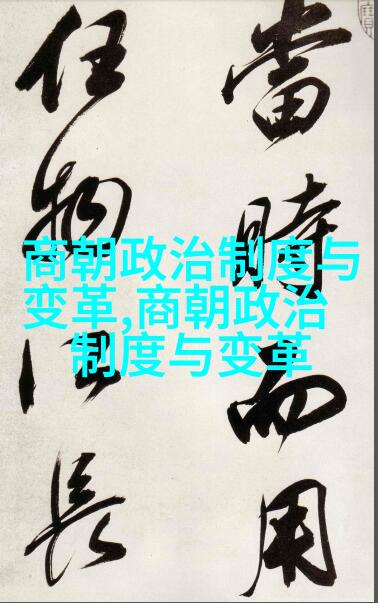 當時而用
任物長
商朝政治制度与
变革,商朝政治
制度与变革